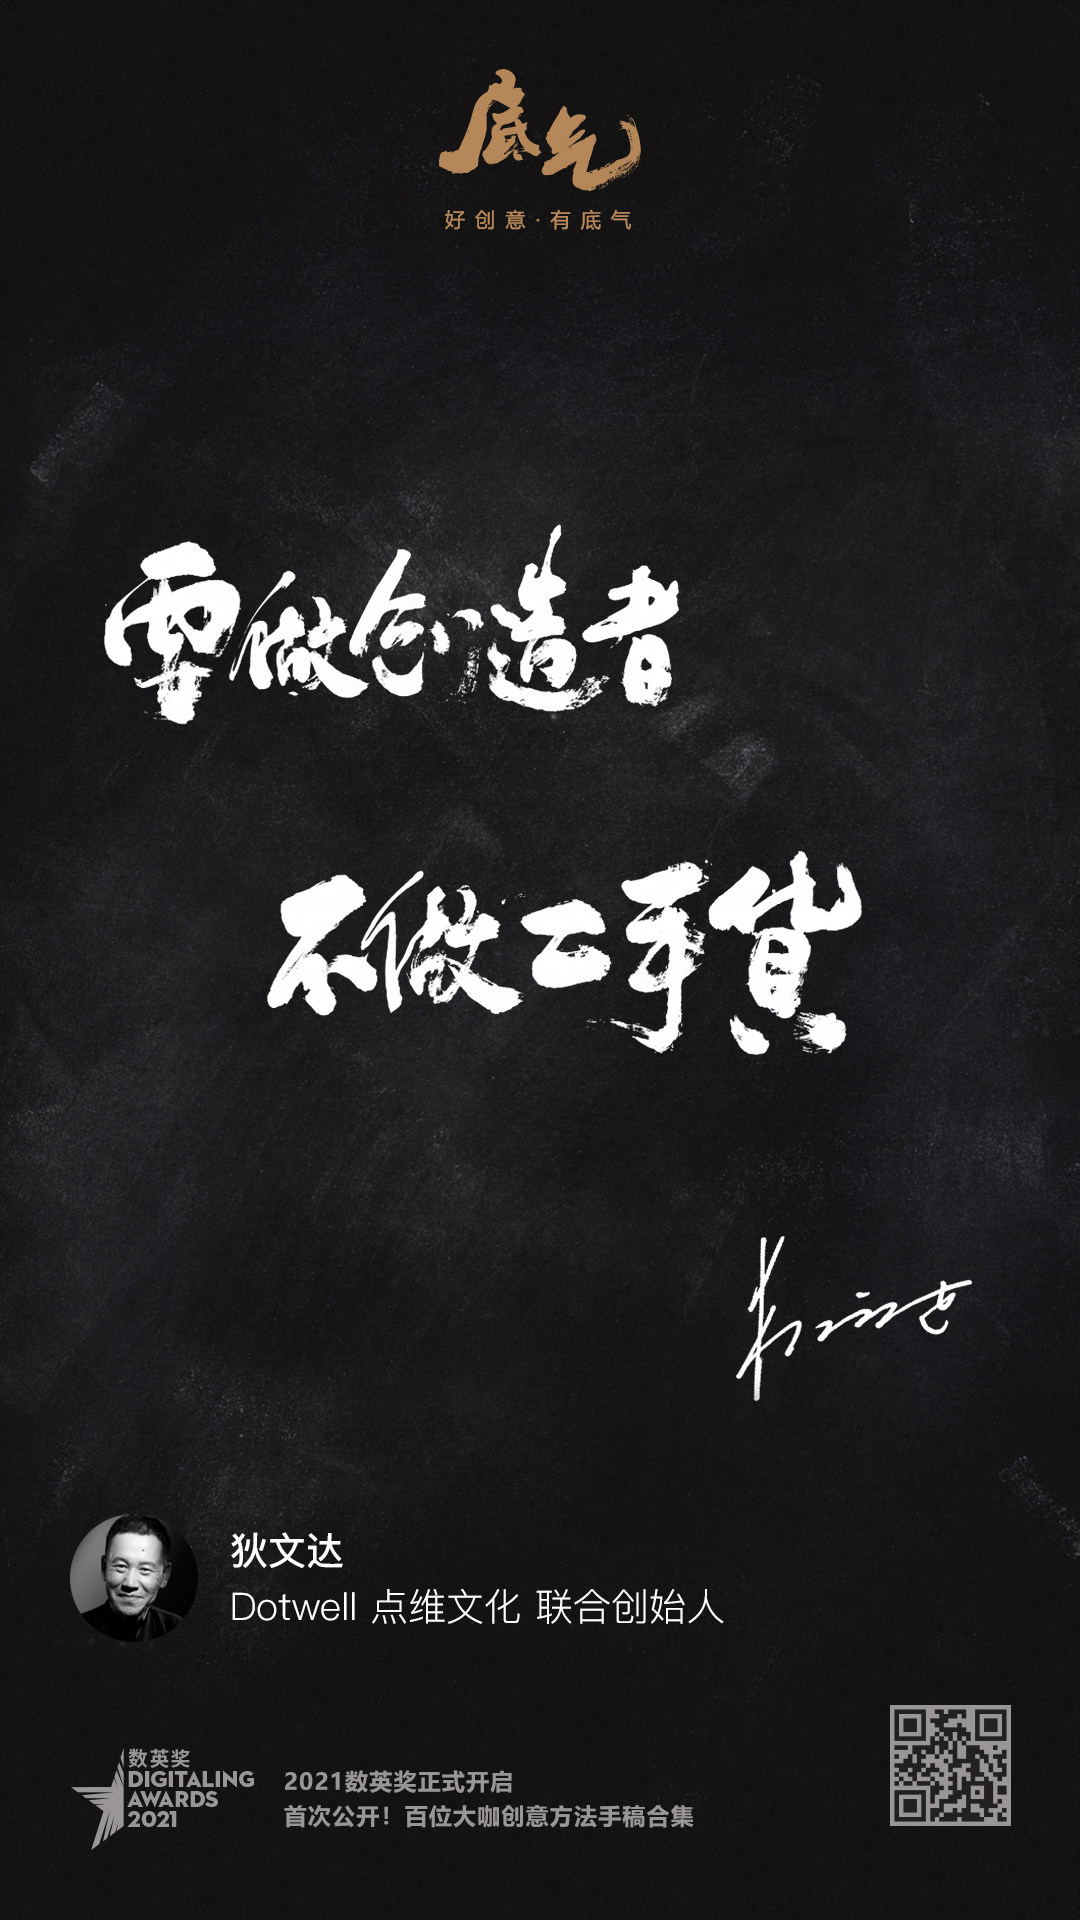 底气
好创意·有底气
要做创造者
不做二手货
狄文达
狄文达
Dotwell 点维文化 联合创始人
数英奖
DIGITALING
AWARDS
2021
2021数英奖正式开启
首次公开！百位大咖创意方法手稿合集